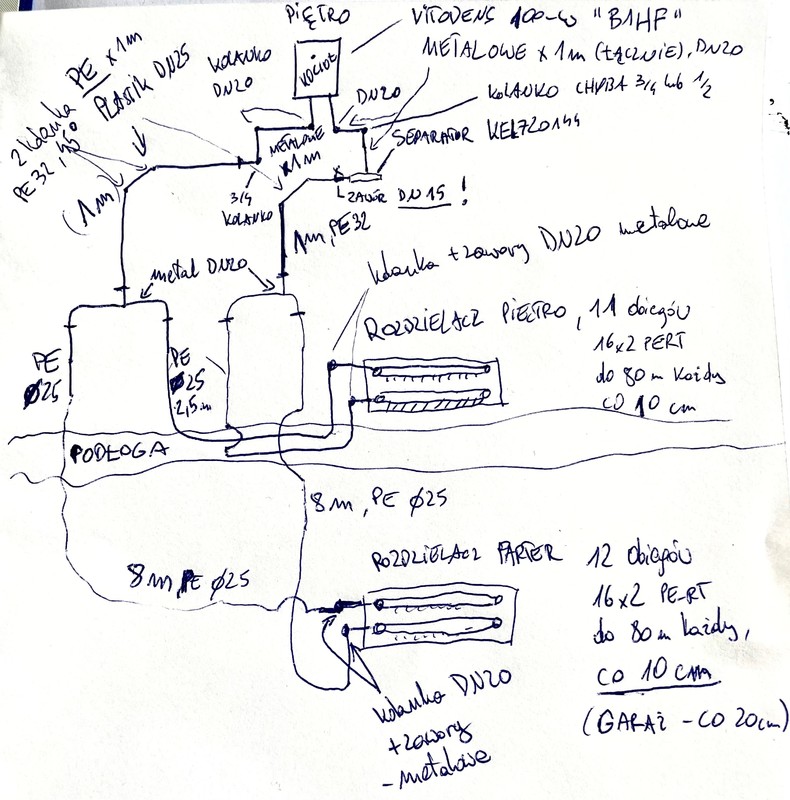 PIĘTRO
VITODENS 100-W "B1HF"
METALOWE x 1m (ŁĄCZNIE), DN20
KOLANKO CHYBA 3/4 lub 1/2
KOCIOŁ
DN20
KOLANKO
DN20
2 kolanka PE x 1m
PE 32, 45°
PLASTIK DN25
METALOWE
x1m
SEPARATOR KELZ20144
ZAWÓR DN15 !
3/4
KOLANKO
(1m)
1m, PE32
metal DN20
kolanka + zawory DN20 metalowe
ROZDZIELACZ PIĘTRO, 11 obiegów
16x2 PERT
do 80m każdy
CO 10 cm
PE
Ø25
PE
Ø25
2,5m
PODŁOGA
8m, PE Ø25
8m, PE Ø25
ROZDZIELACZ PARTER
12 obiegów
16x2 PE-RT
do 80m każdy,
CO 10 cm
(GARAŻ - CO 20cm)
kolanka DN20
+ zawory
- metalowe